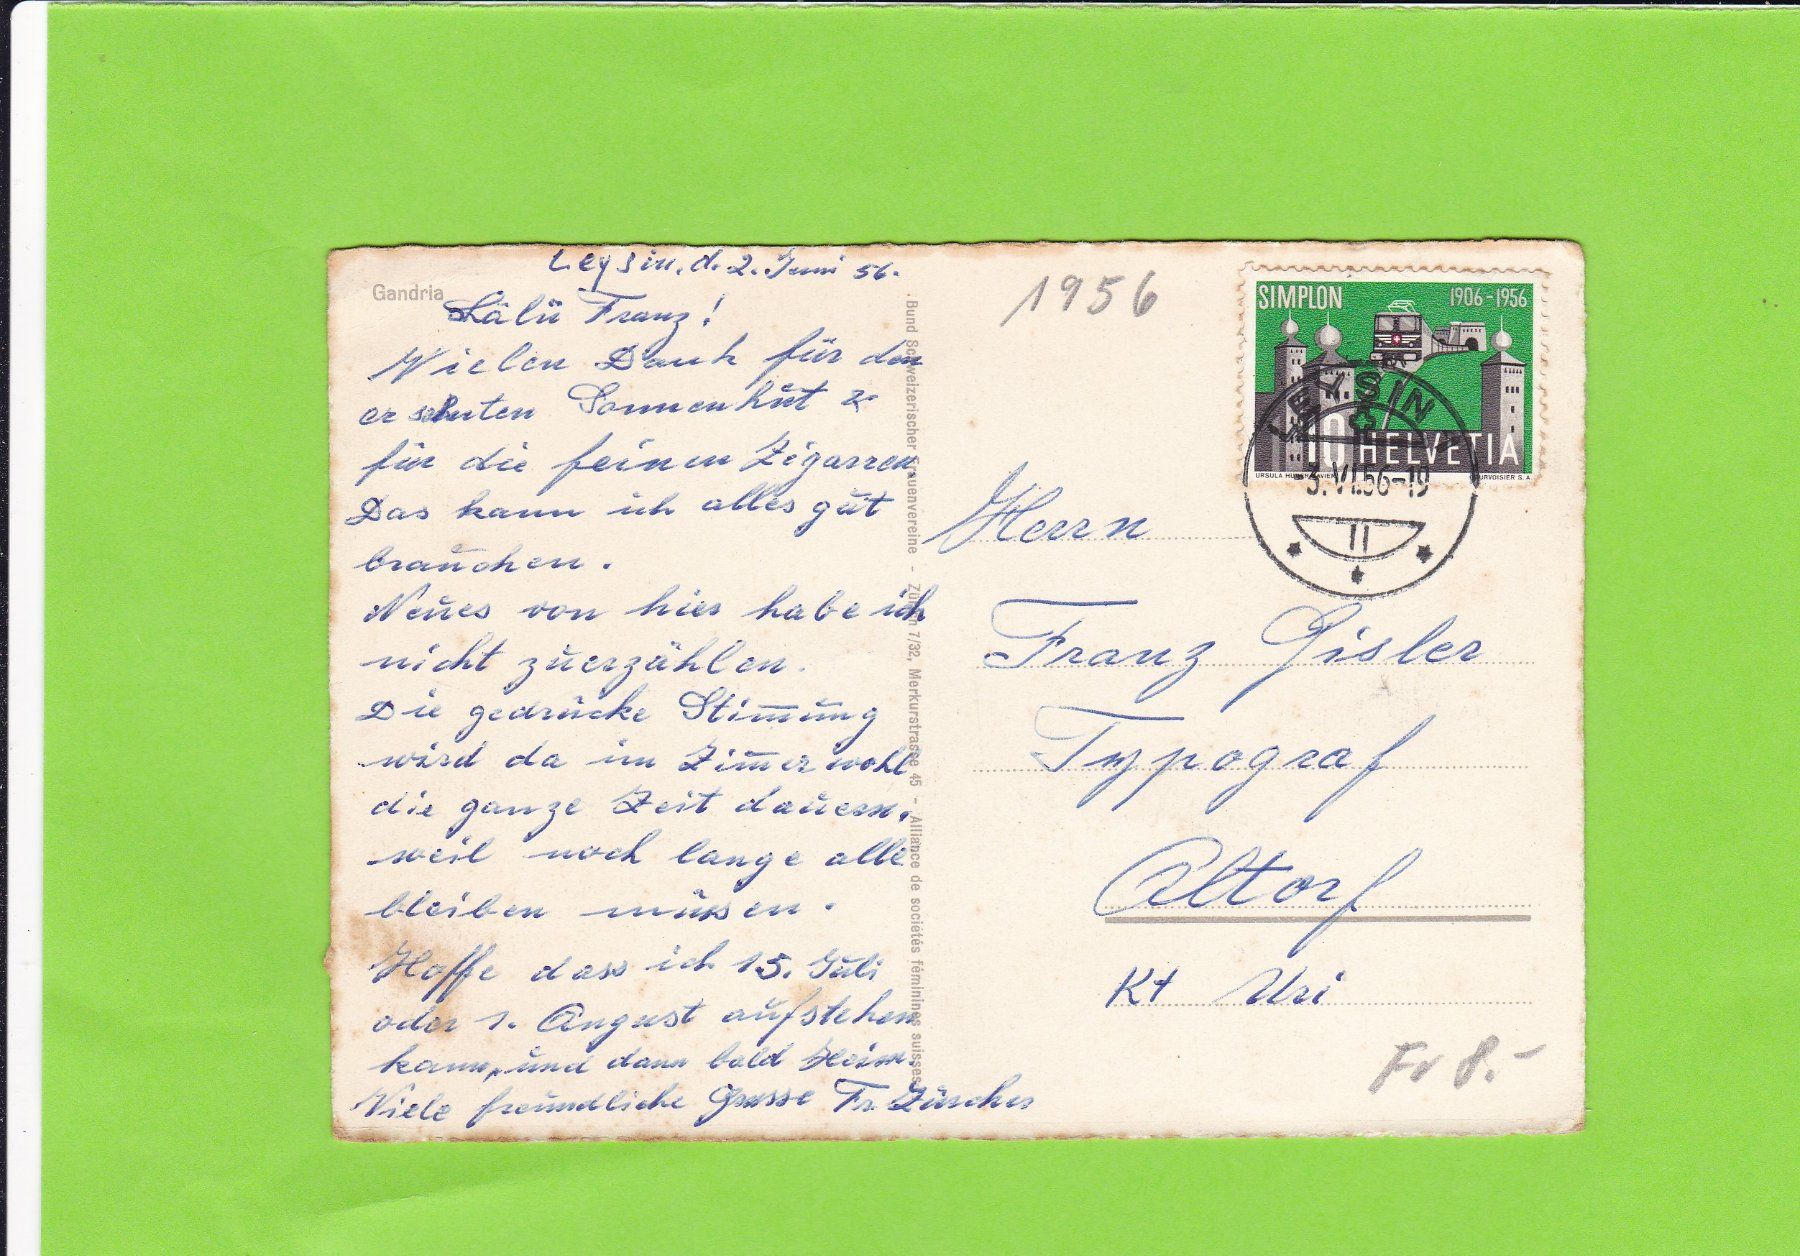 Gandria
Leysin, d. 2. Juni 56.
Sâlü Franz!
Vielen Dank für den
ersehnten Sonnenhut &
für die feinen Zigarren
Das kann ich alles gut
brauchen.
Neues von hier habe ich
nicht zuerzählen.
Die gedrücke Stim̄ung
wird da im Zim̄er wohl
die ganze Zeit dauern,
weil noch lange alle
bleiben müssen.
Hoffe dass ich 15. Juli
oder 1. August aufstehen
kann, und dann bald Heim.
Viele freundliche Grüsse Fr. Zürcher
Bund Schweizerischer Frauenvereine - Zürich 7/32, Merkurstrasse 45 - Alliance de sociétés féminines suisses
1956
SIMPLON 1906-1956
10 HELVETIA
COURVOISIER S.A.
LEYSIN
-3.VI.56-19
II
Herrn
Franz Gisler
Typograf
Altorf
Kt Uri
Fr 8.-